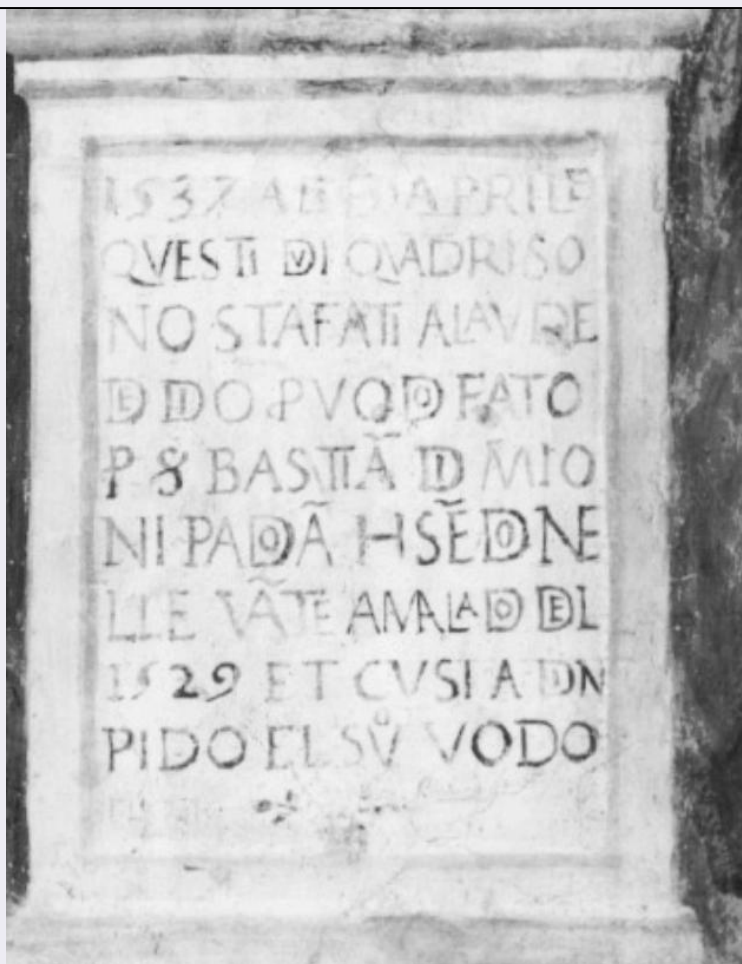 1537 A APRILE
QVESTI DVI QVADRI SO
NO STA FATI A LAVDE
DE DIO P VODO FATO
P S BASTIÃ DI M̃IO
NI PADOÃ H SẼDO NE
LLE VÃTE AMALADO DEL
1529 ET CVSI A DIN
PIDO EL SVO VODO